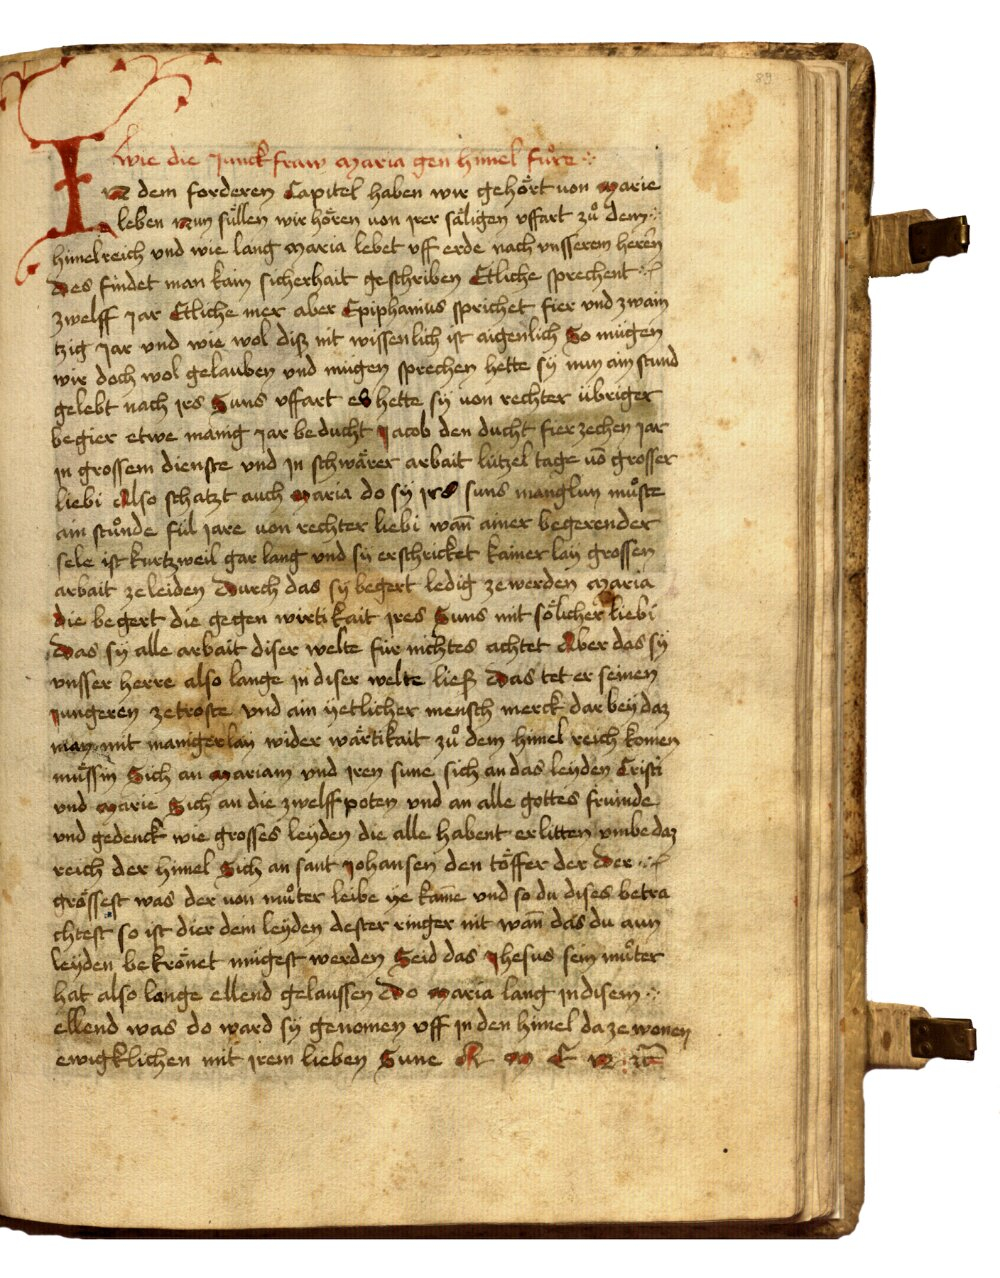 89
Wie die Junckfraw Maria gen himel fůre
In dem forderen Capitel haben wir gehört von Marie
leben Nun süllen wir hören von irer säligen uffart zů dem
himelreich und wie lang Maria lebet uff erde nach unsserem heren
Des findet man kain sicherhait geschriben Ettliche sprechent
zwelff jar Ettliche mer aber Epiphanius sprichet fier und zwain
tzig jar und wie wol diß nit wissenlich ist aigenlich So mügen
wir doch wol gelauben und mügen sprechen hette sÿ nun ain stund
gelebt nach irs Suns uffart es hette sÿ von rechter übriger
begier etwe manig jar beducht Jacob den ducht fierzechen jar
in grossem dienste und in schwärer arbait lützel tage vō grosser
liebi Also schatzt auch Maria do sÿ irs suns manglun můste
ain stůnde fül jare von rechter liebi wañ ainer begerender
sele ist kurtzweil gar lang und sÿ erschricket kainer laÿ grossen
arbait ze leiden Durch das sÿ begert ledig ze werden Maria
die begert die gegen wirtikait ires Suns mit sölicher liebi
Das sÿ alle arbait diser welte für nichtes achtet Aber das sÿ
unsser herre also lange in diser welte ließ Das tet er seinen
jungeren ze troste und ain ÿetlicher mensch merck dar beÿ daz
man mit maniger laÿ wider wärtikait zů dem himel reich komen
müssin Sich an Mariam und iren sune sich an das leÿden Cristi
und Marie Sich an die zwelffpoten und an alle gottes fruinde
und gedenck wie grosses leÿden die alle habent erlitten umbe daz
reich der himel Sich an sant Johansen den töffer der der
grössest was der von můter leibe ÿe kame und so du dises betra
chtest so ist dier dein leÿden dester ringer nit wañ das du aun
leÿden bekrönet mügest werden Seid das Jhesus sein můter
hat also lange ellend gelaussen Do Maria lang in disem
ellend was do ward sÿ genomen uff in den himel da ze wonen
ewigklichen mit irem lieben Sune A M E N